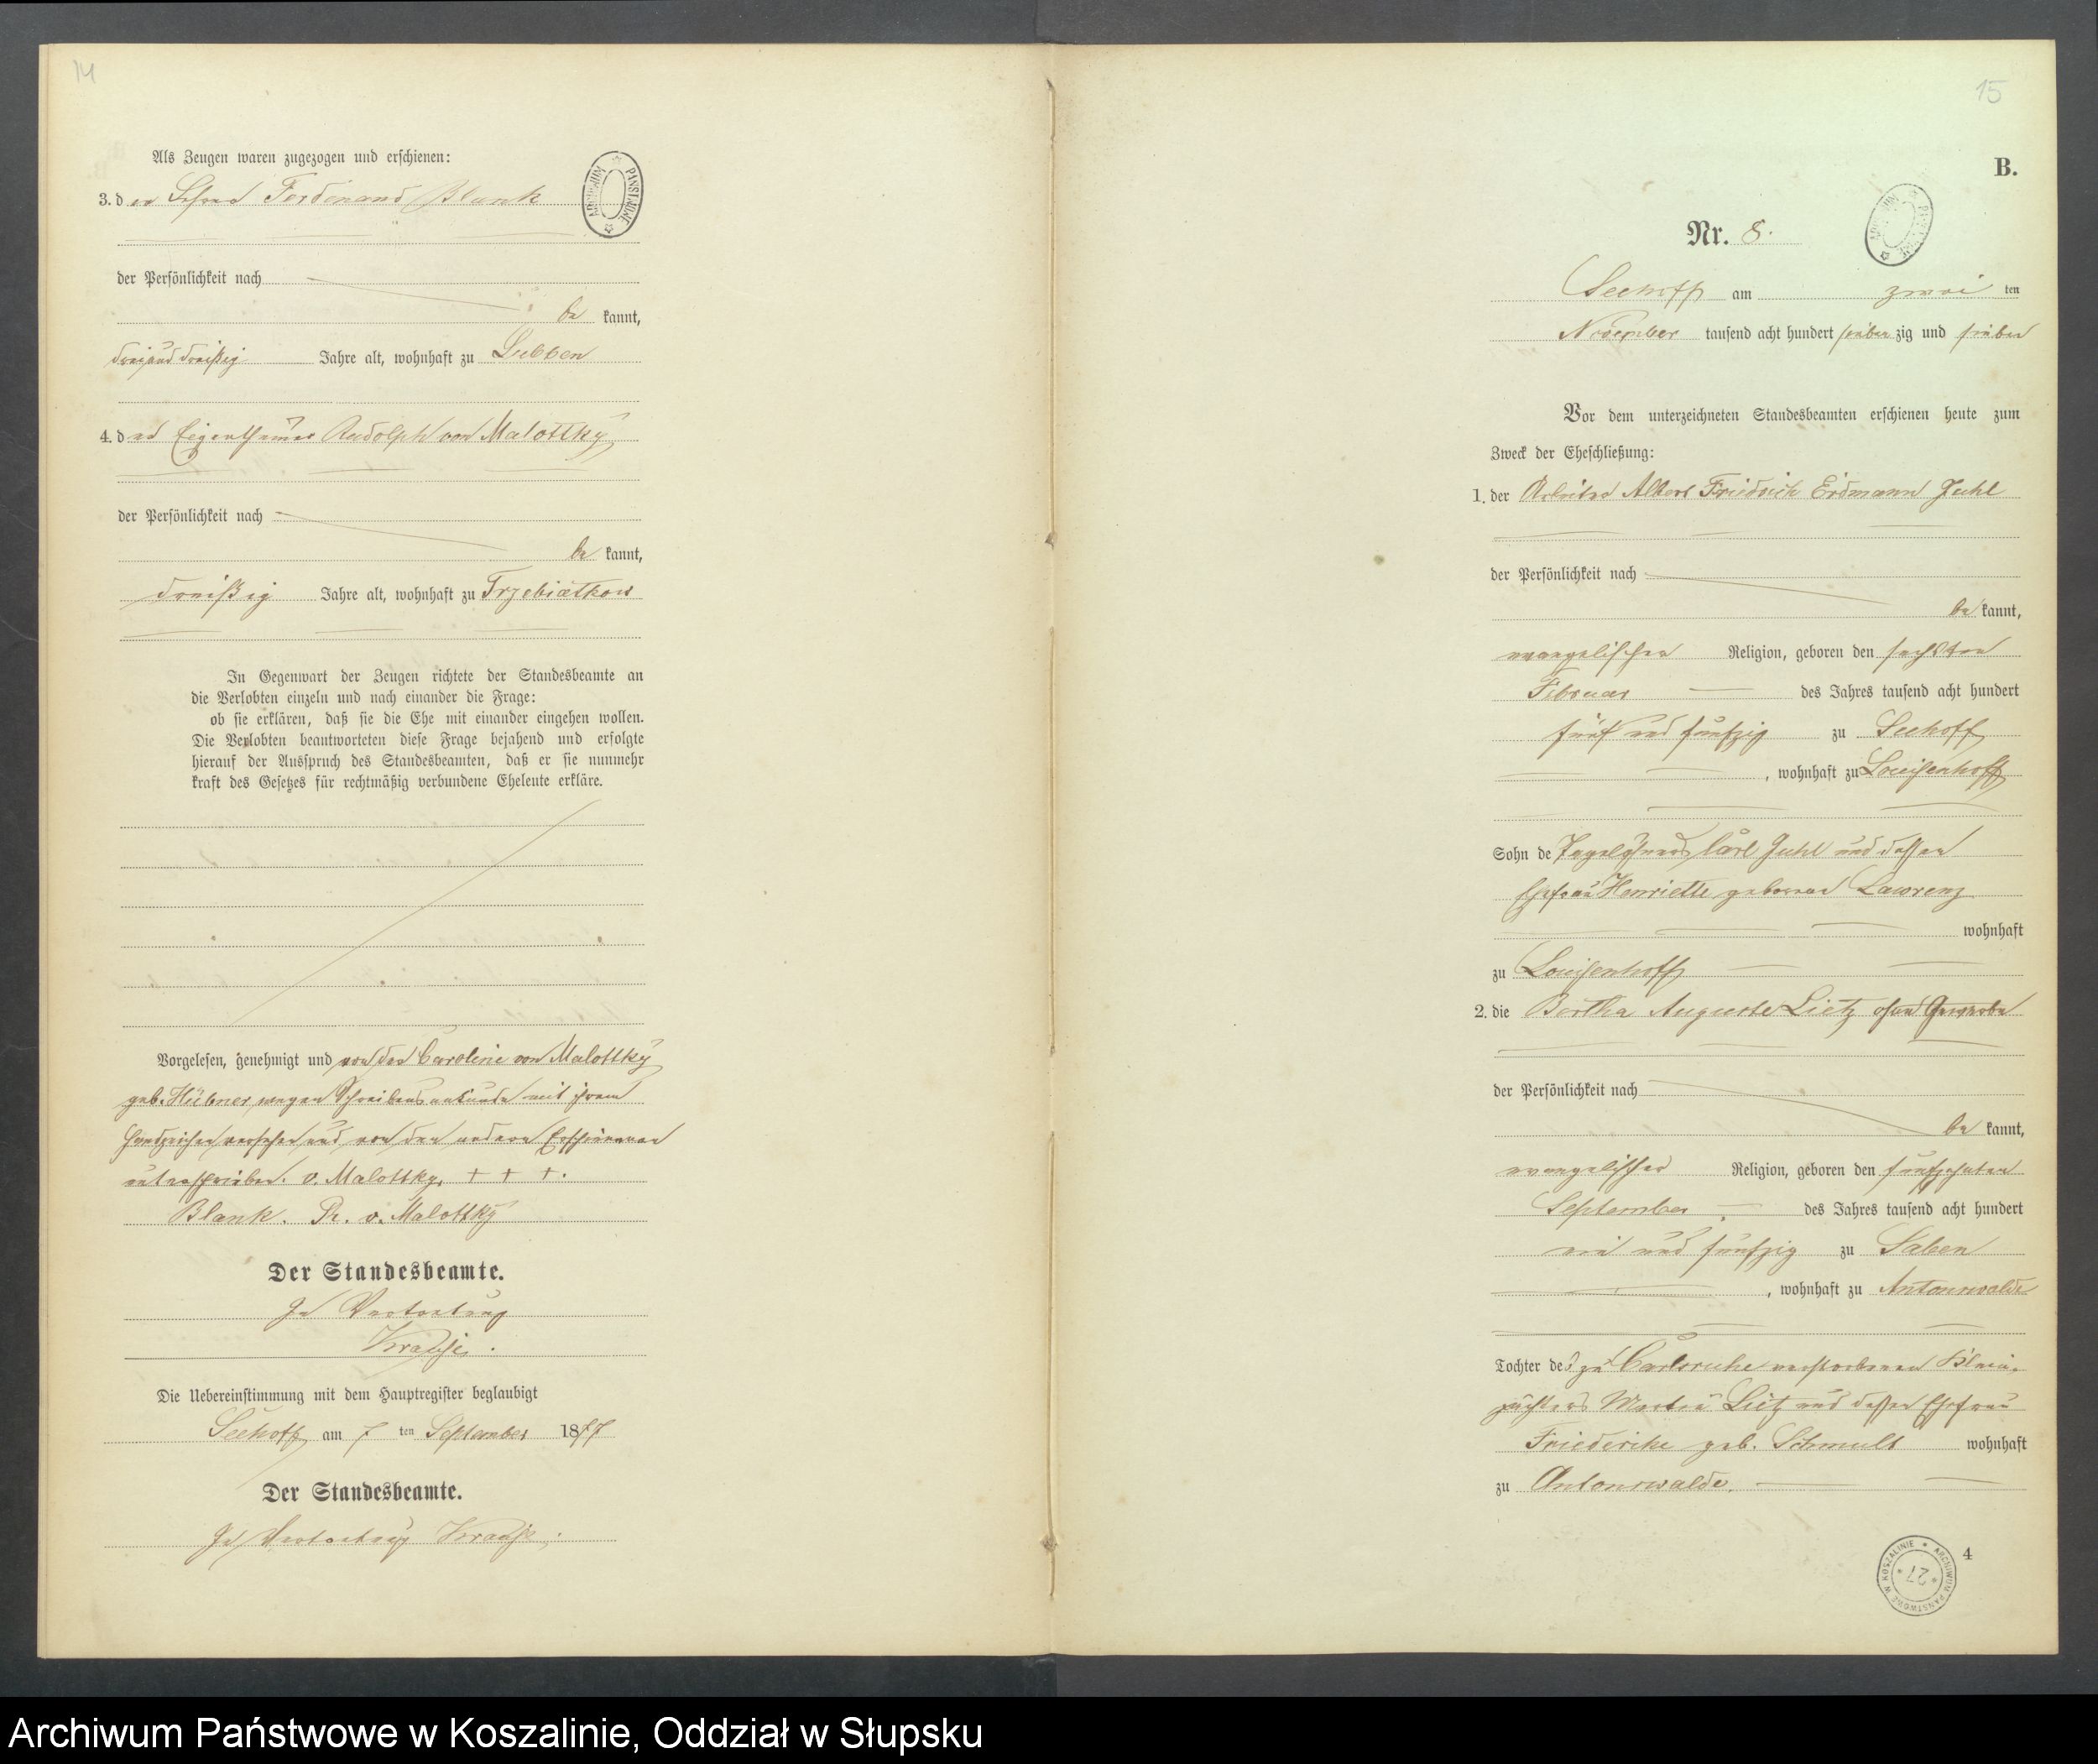 14
Als Zeugen waren zugezogen und erschienen:
3. der Lehrer Ferdinand Blank
der Persönlichkeit nach
be kannt,
dreiunddreißig Jahre alt, wohnhaft zu Lubben
4. der Eigenthümer Rudolph von Malottky
der Persönlichkeit nach
be kannt,
dreißig Jahre alt, wohnhaft zu Trzebiatkow
In Gegenwart der Zeugen richtete der Standesbeamte an
die Verlobten einzeln und nach einander die Frage:
ob sie erklären, daß sie die Ehe mit einander eingehen wollen.
Die Verlobten beantworteten diese Frage bejahend und erfolgte
hierauf der Ausspruch des Standesbeamten, daß er sie nunmehr
kraft des Gesetzes für rechtmäßig verbundene Eheleute erkläre.
Vorgelesen, genehmigt und von der Caroline von Malottky
geb. Hübner wegen Schreibensunkunde mit ihrem
Handzeichen versehen und von den andern Erschienenen
unterschrieben. v. Malottky. + + +.
Blank. R. v. Malottky
Der Standesbeamte.
In Vertretung
Krause.
Die Uebereinstimmung mit dem Hauptregister beglaubigt
Seehoff am 7 ten September 1877
Der Standesbeamte.
In Vertretung Krause.
ARCHIWUM PAŃSTWOWE
15
B.
Nr. 8.
Seehoff am zwei ten
November tausend acht hundert sieben zig und sieben
Vor dem unterzeichneten Standesbeamten erschienen heute zum
Zweck der Eheschließung:
1. der Arbeiter Albert Friedrich Erdmann Juhl
der Persönlichkeit nach
be kannt,
evangelischer Religion, geboren den sechsten
Februar des Jahres tausend acht hundert
fünf und fünfzig zu Seehoff
, wohnhaft zu Louisenhoff
Sohn de Tagelöhners Carl Juhl und dessen
Ehefrau Henriette geborene Lawrenz
wohnhaft
zu Louisenhoff
2. die Bertha Auguste Lietz ohne Gewerbe
der Persönlichkeit nach
be kannt,
evangelischer Religion, geboren den fünfzehnten
September des Jahres tausend acht hundert
ein und fünfzig zu Saben
, wohnhaft zu Antonswalde
Tochter des zu Carlsruhe verstorbenen Klein-
pächters Martin Lietz und dessen Ehefrau
Friederike geb. Schmult wohnhaft
zu Antonswalde.
4
ARCHIWUM PAŃSTWOWE W KOSZALINIE
27
Archiwum Państwowe w Koszalinie, Oddział w Słupsku